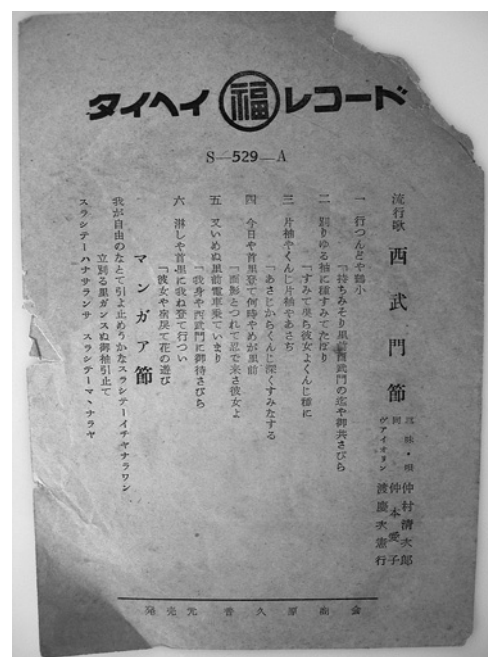 タイヘイ 福 レコード
S—529—A
流行歌 西武門節
三味・唄 仲村清次郎
同 仲本愛子
ヴァイオリン 渡慶次憲行
一 行つんどや鶴小
「持ちみそり里前西武門の迄や御共さびら
二 別りゆる袖に種すみてたぼり
「すみて呉ら彼女よくんじ種に
三 片袖やくんじ片袖やあさぢ
「あさじからくんじ深くすみなする
四 今日や首里登て何時やめが里前
「面影とつれて忍で来さ彼女よ
五 又いめぬ里前電車乗ていまり
「我身や西武門に御待さびら
六 淋しや首里に我ね登て行つい
「彼女や宿戻て花の遊び
マンガア節
我が自由のなとて引よ止めうかなスラシテーイチャナラワン
立別る里ガンスぬ御袖引止て
スラシテーハナサランサ スラシテーマヽナラヤ
発売元 普久原商会